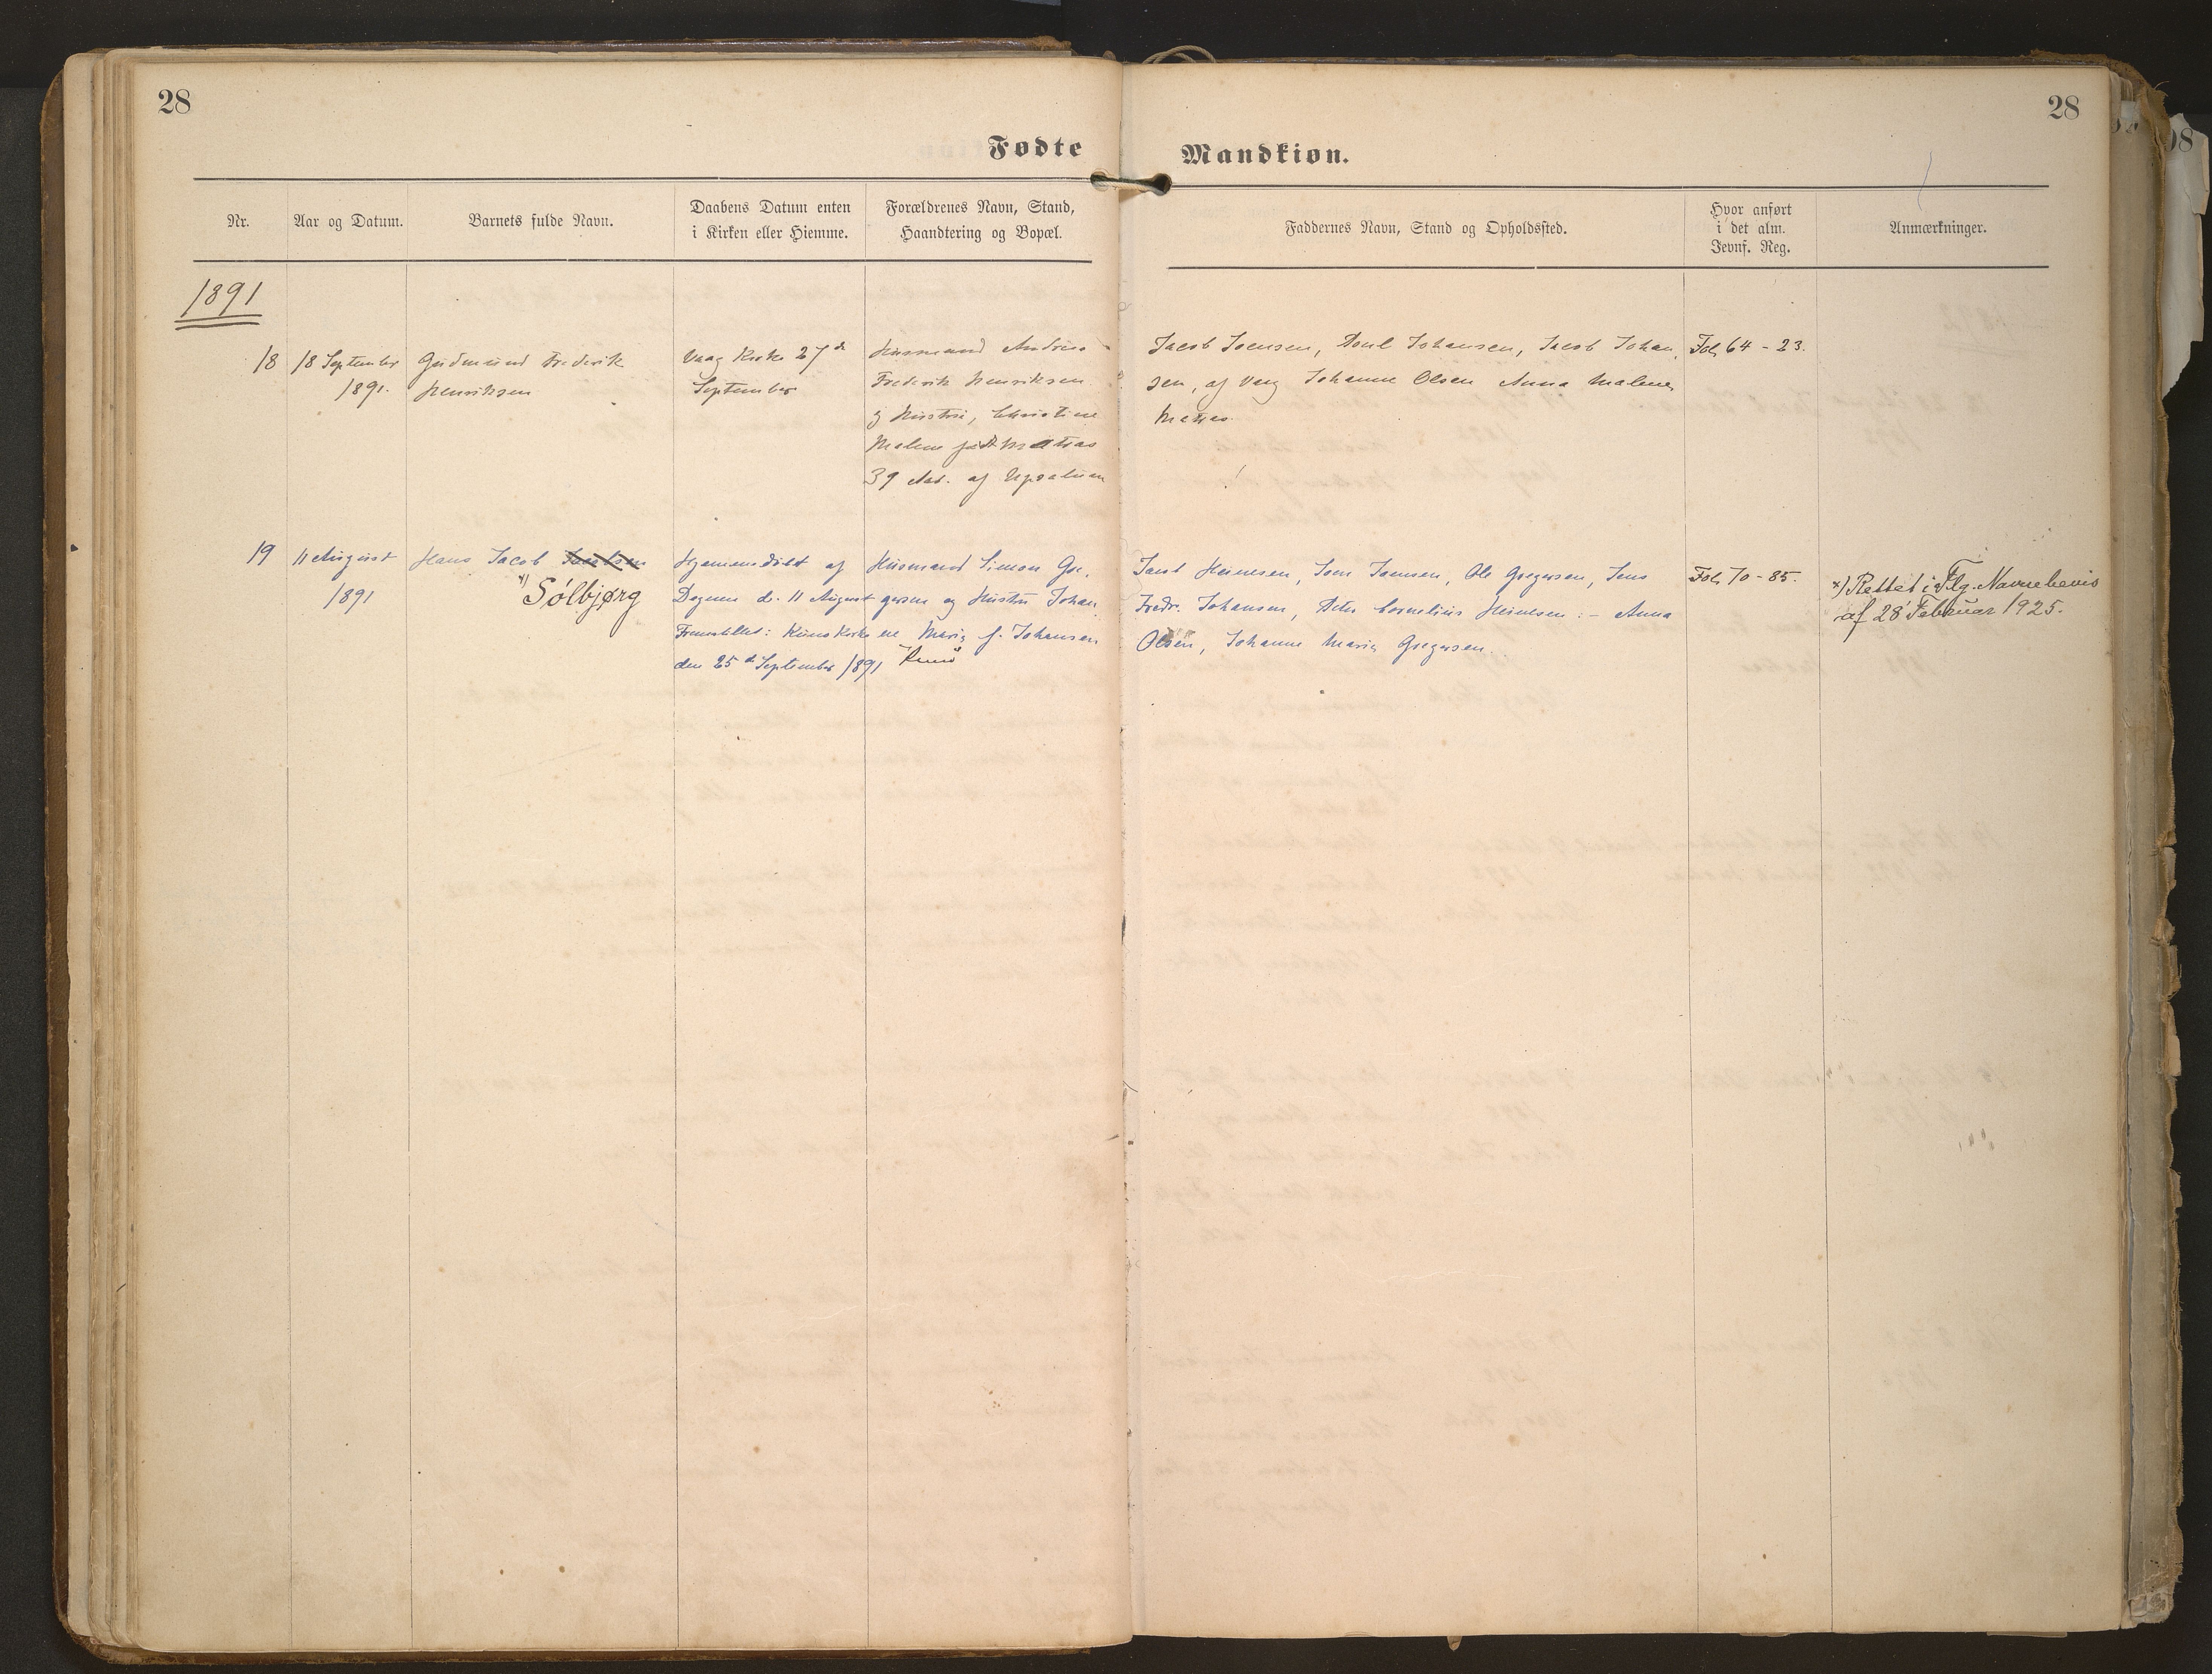 28
28
Fødte
Mandkiøn.
Nr.
Aar og Datum.
Barnets fulde Navn.
Daabens Datum enten
i Kirken eller Hiemme.
Forældrenes Navn, Stand,
Haandtering og Bopæl.
Faddernes Navn, Stand og Opholdssted.
Hvor anført
i det alm.
Jevnf. Reg.
Anmærkninger.
1891
18
18 September
1891.
Gudmund Frederik
Henriksen
Vaag Kirke 27de
September
Husmand Andreas
Frederik Henriksen
og Hustru, Christine
Malene født Mattras
39 Aar. af
Jacob Joensen, Poul Johansen, Jacob Johan-
sen, af Vaag Johanne Olsen Anna Malene
Mattras
Fol. 64 - 23.
19
11 August
1891
Hans Jacob
x) Sólbjørg
Hjemmedøbt af
Degnen d. 11 August
Fremstillet: Kunø Kirke
den 25de September 1891
Husmand Simon Gre-
gersen og Hustru Johan-
ne Maria f. Johansen
Kunø
Jacob Heinesen, Joen Joensen, Ole Gregersen, Jens
Fredr. Johansen, Peter Cornelius Heinesen: - Anna
Olsen, Johanne Maria Gregersen.
Fol. 70 - 85.
x) Rettet i Flg. Navnebevis
af 28' Februar 1925.